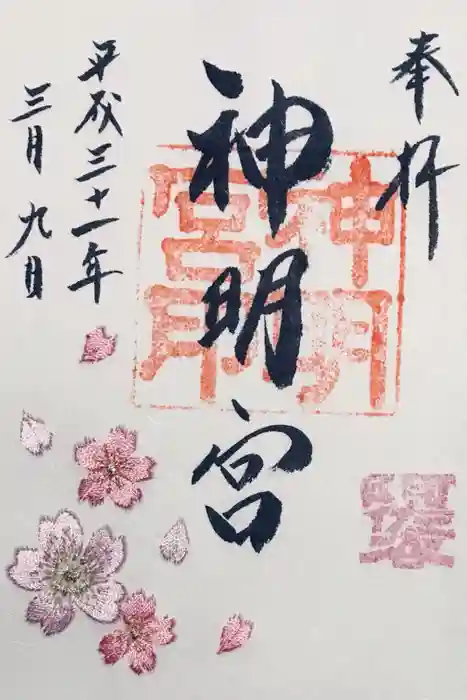 奉拝
神明宮
神明宮印
平成三十一年
三月九日